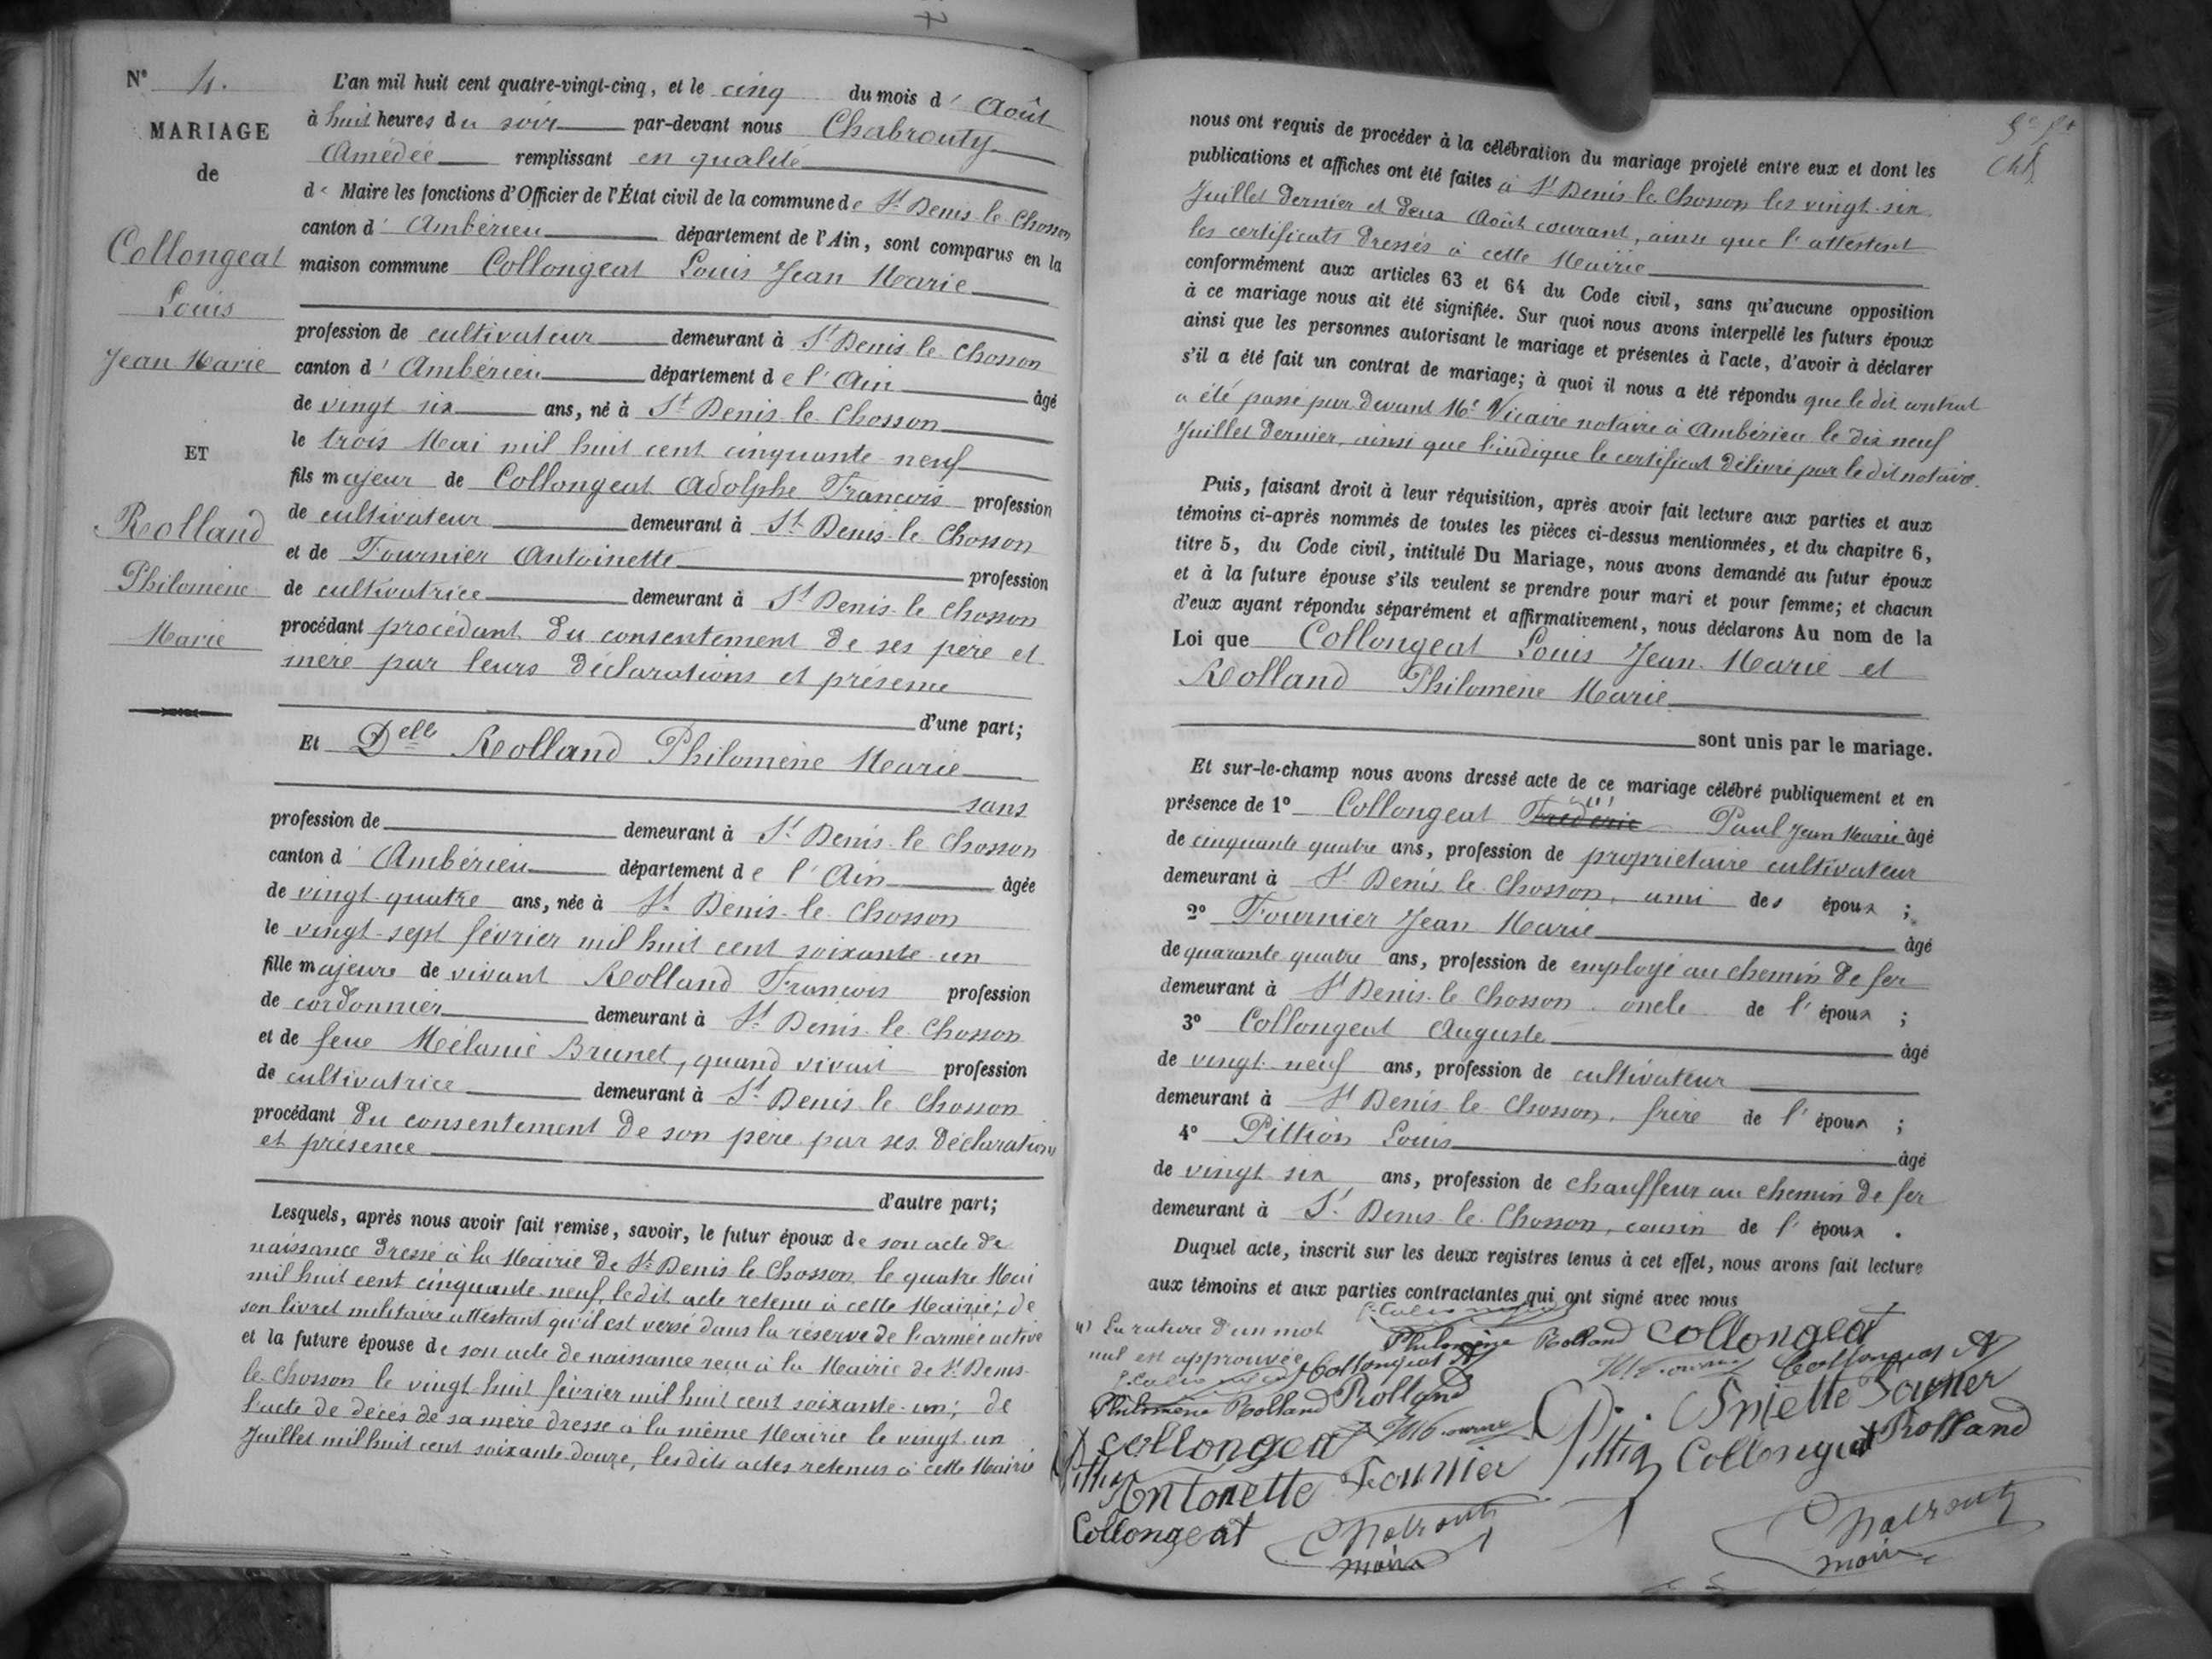 N° 4.
MARIAGE
de
Collongeat
Louis
Jean Marie
ET
Rolland
Philomène
Marie
L'an mil huit cent quatre-vingt-cinq, et le cinq du mois d' Août
à huit heures du soir par-devant nous Chabrouty
Amédée remplissant en qualité
de Maire les fonctions d'Officier de l'État civil de la commune de St Denis-le-Chosson
canton d' Ambérieu département de l'Ain, sont comparus en la
maison commune Collongeat Louis Jean Marie
profession de cultivateur demeurant à St Denis-le-Chosson
canton d' Ambérieu département de l'Ain âgé
de vingt six ans, né à St Denis-le-Chosson
le trois Mai mil huit cent cinquante-neuf
fils majeur de Collongeat Adolphe François profession
de cultivateur demeurant à St Denis-le-Chosson
et de Fournier Antoinette profession
de cultivatrice demeurant à St Denis-le-Chosson
procédant procédant du consentement de ses père et
mère par leurs déclarations et présence
d'une part;
Et Delle Rolland Philomène Marie
sans
profession de demeurant à St Denis-le-Chosson
canton d' Ambérieu département de l'Ain âgée
de vingt-quatre ans, née à St Denis-le-Chosson
le vingt-sept février mil huit cent soixante-un
fille majeure de vivant Rolland François profession
de cordonnier demeurant à St Denis-le-Chosson
et de feue Mélanie Brunet, quand vivait profession
de cultivatrice demeurant à St Denis-le-Chosson
procédant du consentement de son père par ses déclarations
et présence
d'autre part;
Lesquels, après nous avoir fait remise, savoir, le futur époux de son acte de
naissance dressé à la Mairie de St Denis le Chosson, le quatre Mai
mil huit cent cinquante-neuf, ledit acte retenu à cette Mairie; de
son livret militaire attestant qu'il est versé dans la réserve de l'armée active
et la future épouse de son acte de naissance reçu à la Mairie de St Denis-
le-Chosson le vingt-huit février mil huit cent soixante-un; de
l'acte de décès de sa mère dressé à la même Mairie le vingt-un
Juillet mil huit cent soixante douze, lesdits actes retenus à cette Mairie
nous ont requis de procéder à la célébration du mariage projeté entre eux et dont les
publications et affiches ont été faites à St Denis-le-Chosson les vingt-six
Juillet dernier et deux Août courant, ainsi que l'attestent
les certificats dressés à cette Mairie
conformément aux articles 63 et 64 du Code civil, sans qu'aucune opposition
à ce mariage nous ait été signifiée. Sur quoi nous avons interpellé les futurs époux
ainsi que les personnes autorisant le mariage et présentes à l'acte, d'avoir à déclarer
s'il a été fait un contrat de mariage; à quoi il nous a été répondu que le dit contrat
a été passé par devant Me Vicaire notaire à Ambérieu le dix neuf
Juillet dernier, ainsi que l'indique le certificat délivré par ledit notaire.
Puis, faisant droit à leur réquisition, après avoir fait lecture aux parties et aux
témoins ci-après nommés de toutes les pièces ci-dessus mentionnées, et du chapitre 6,
titre 5, du Code civil, intitulé Du Mariage, nous avons demandé au futur époux
et à la future épouse s'ils veulent se prendre pour mari et pour femme; et chacun
d'eux ayant répondu séparément et affirmativement, nous déclarons Au nom de la
Loi que Collongeat Louis Jean-Marie et
Rolland Philomène Marie
sont unis par le mariage.
Et sur-le-champ nous avons dressé acte de ce mariage célébré publiquement et en
présence de 1° Collongeat Frédéric Paul Jean Marie âgé
de cinquante quatre ans, profession de propriétaire cultivateur
demeurant à St Denis-le-Chosson, ami des époux ;
2° Fournier Jean Marie âgé
de quarante quatre ans, profession de employé au chemin de fer
demeurant à St Denis-le-Chosson, oncle de l'époux ;
3° Collongeat Auguste âgé
de vingt-neuf ans, profession de cultivateur
demeurant à St Denis-le-Chosson, frère de l'époux ;
4° Pittion Louis âgé
de vingt six ans, profession de chauffeur au chemin de fer
demeurant à St Denis-le-Chosson, cousin de l'époux .
Duquel acte, inscrit sur les deux registres tenus à cet effet, nous avons fait lecture
aux témoins et aux parties contractantes qui ont signé avec nous
La rature d'un mot
nul est approuvée
Philomène Rolland Collongeat
Collongeat A Collongeat A
Philomène Rolland Rolland
Collongeat Collongeat Rolland
Antoinette Fournier
Collongeat Chabrouty Chabrouty
maire maire